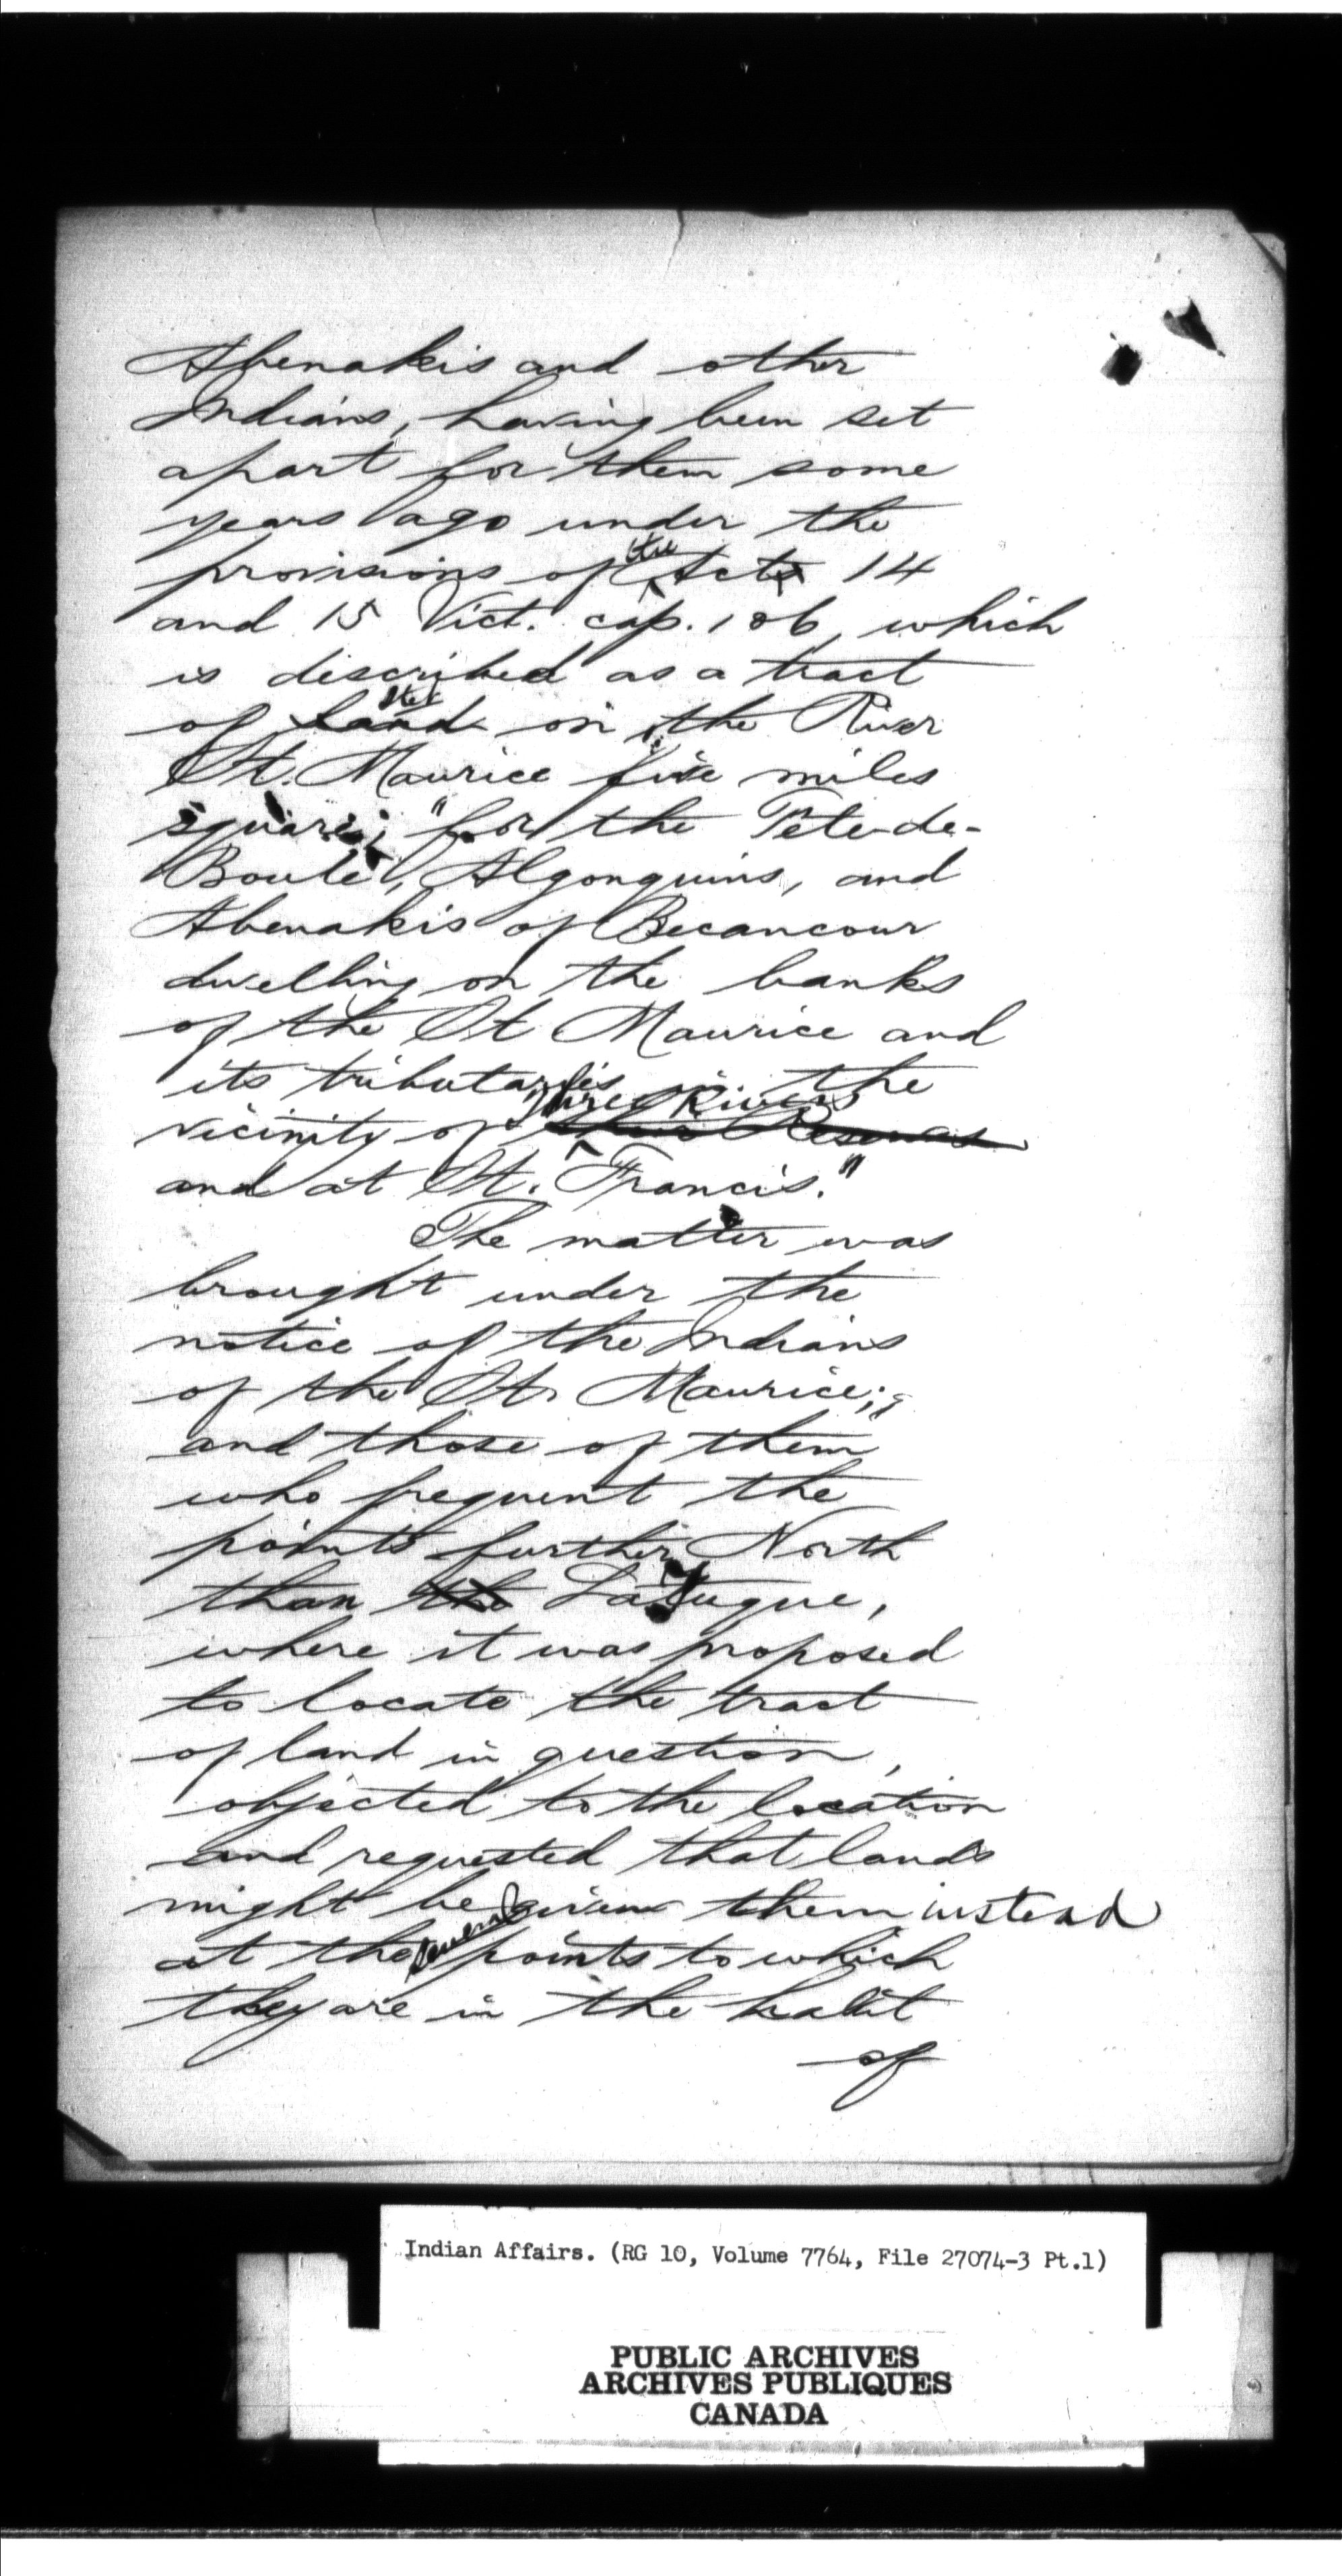 Abenakis and other
Indians, having been set
apart for them some
years ago under the
provisions of the Act 14
and 15 Vict. cap. 106, which
is described as a tract
of land on the River
St. Maurice five miles
square; "for the Tete-de-
Boule, Algonquins, and
Abenakis of Becancour
dwelling on the banks
of the St Maurice and
its tributaries in the
vicinity of Three Rivers
and at St. Francis."
The matter was
brought under the
notice of the Indians
of the St. Maurice;
and those of them
who frequent the
points further North
than LaTuque,
where it was proposed
to locate the tract
of land in question,
objected to the location
and requested that lands
might be given them instead
at the several points to which
they are in the habit
of
Indian Affairs. (RG 10, Volume 7764, File 27074-3 Pt.1)
PUBLIC ARCHIVES
ARCHIVES PUBLIQUES
CANADA